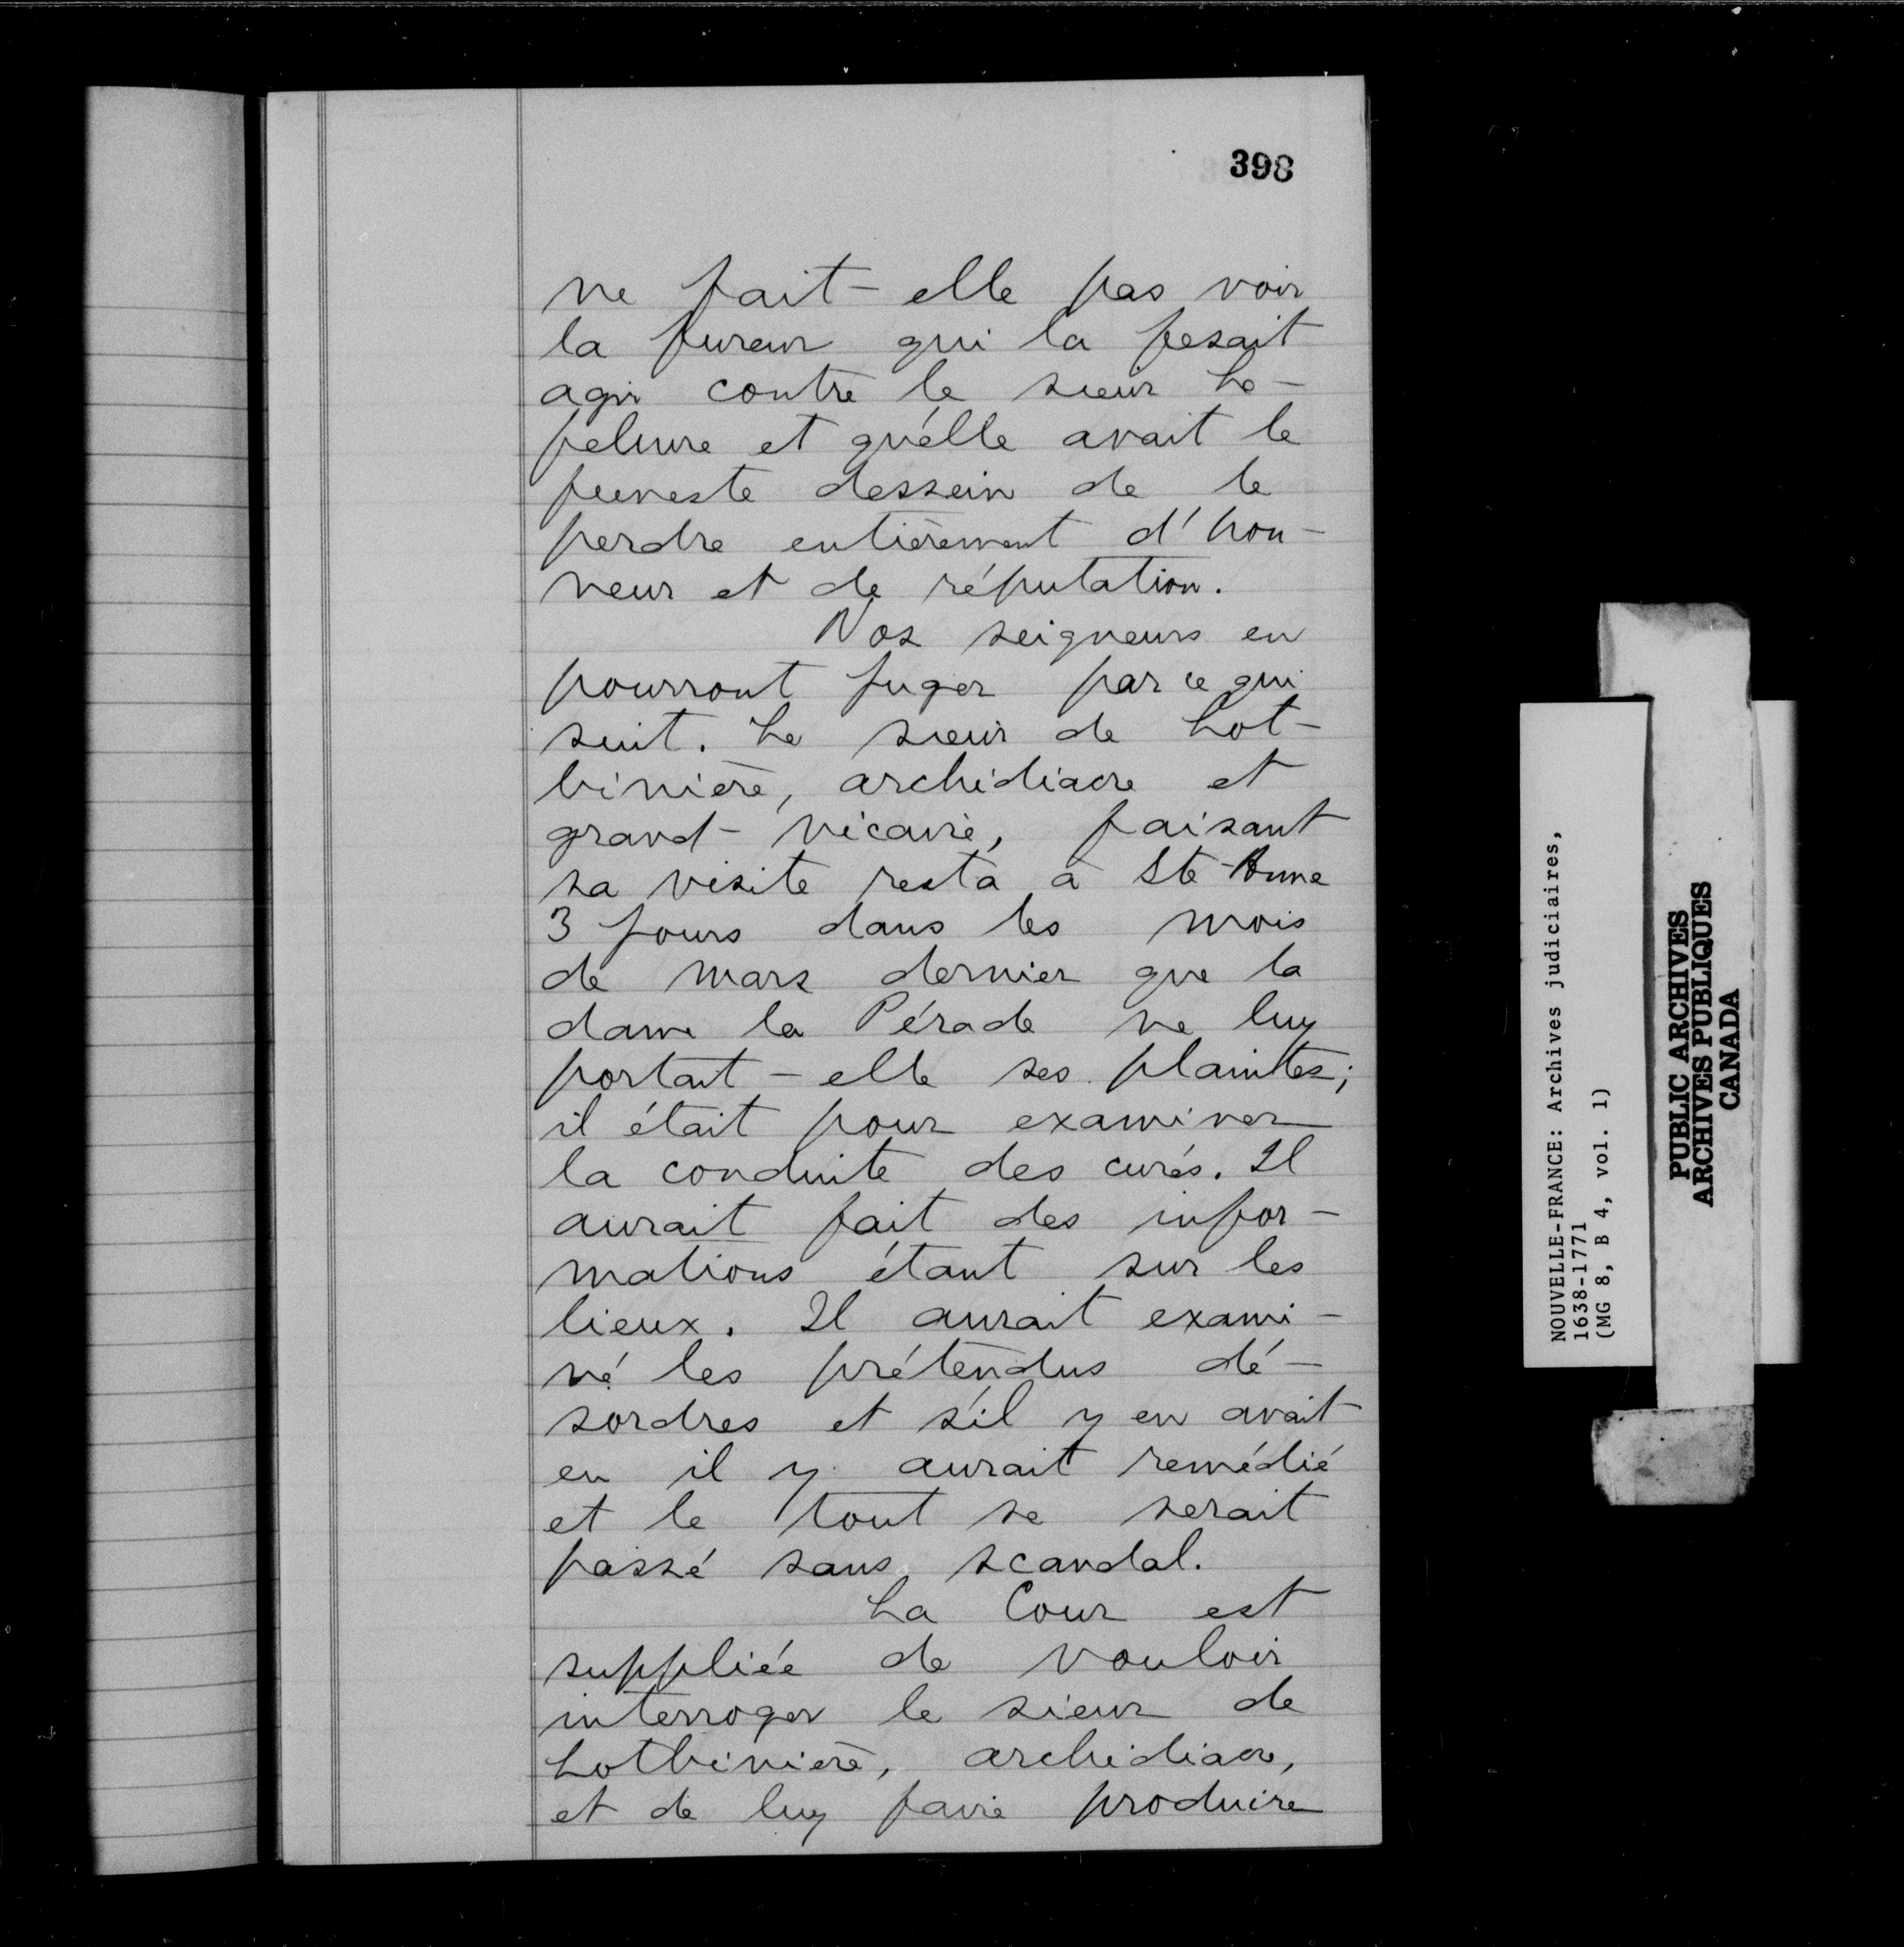 398
ne fait-elle pas voir
la fureur qui la fesait
agir contre le sieur Le-
feluvre et qu'elle avait le
funeste dessein de le
perdre entièrement d'hon-
neur et de réputation.
Nos seigneurs en
pourront juger par ce qui
suit. Le sieur de Lot-
binière, archidiacre et
grand-vicaire, faisant
sa visite resta à Ste-Anne
3 jours dans les mois
de mars dernier que la
dame la Pérade ne luy
portait-elle ses plaintes;
il était pour examiner
la conduite des curés. Il
aurait fait des infor-
mations étant sur les
lieux. Il aurait exami-
né les prétendus dé-
sordres et s'il y en avait
eu il y aurait remédié
et le tout se serait
passé sans scandal.
La Cour est
suppliée de vouloir
interroger le sieur de
Lotbinière, archidiacre,
et de luy faire produire
NOUVELLE-FRANCE: Archives judiciaires,
1638-1771
(MG 8, B 4, vol. 1)
PUBLIC ARCHIVES
ARCHIVES PUBLIQUES
CANADA